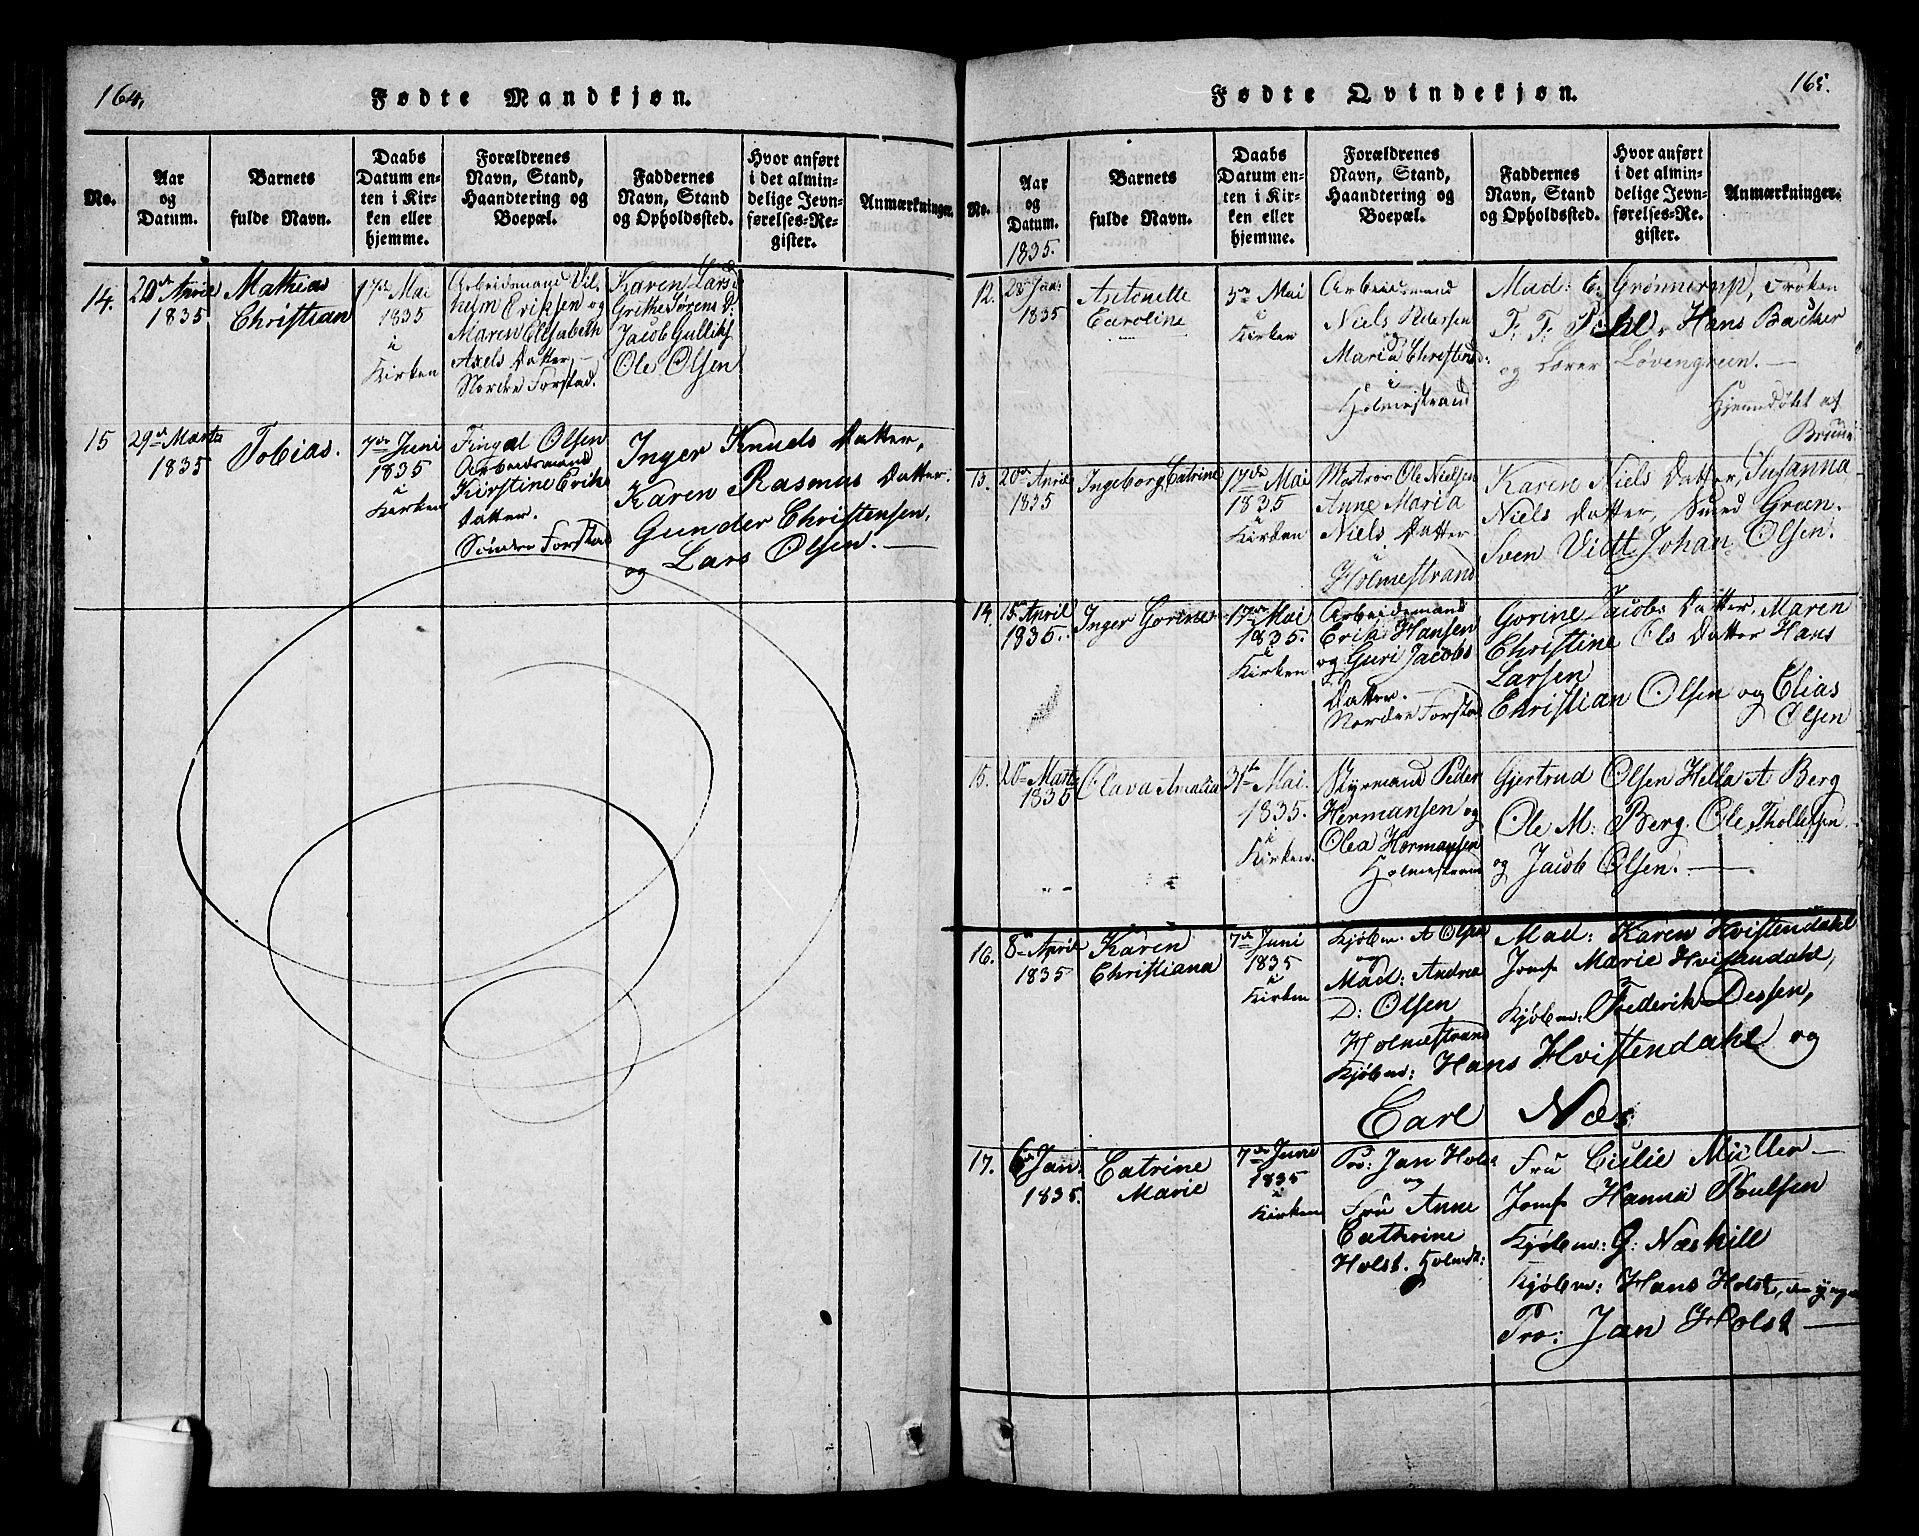 164.
Fødte Mandkjøn.
No.
Aar
og
Datum.
Barnets
fulde Navn.
Daabs
Datum en-
ten i Kir-
ken eller
hjemme.
Forældrenes
Navn, Stand,
Haandtering og
Boepæl.
Faddernes
Navn, Stand
og Opholdssted.
Hvor anført
i det almin-
delige Jevn-
førelses-Re-
gister.
Anmærkninger.
14.
20de April
1835
Mathias
Christian
17de Mai
1835
i
Kirken
Arbeidsmand Vil-
helm Eriksen og
Maren Elisabeth
Axels Datter,
Nordre Forstad.
Karen Lars D
Grithe Sörens D:
Jacob Gulliks
Ole Olsen
15
29de Marts
1835
Tobias.
7de Juni
1835
i
Kirken
Fingal Olsen
Arbeidsmand
Kirstine Eriks
Datter.
Söndre Forstad
Inger Knuds Datter,
Karen Rasmus Datter.
Gunder Christensen,
og Lars Olsen.
165.
Fødte Qvindekjøn.
No.
Aar
og
Datum.
1835.
Barnets
fulde Navn.
Daabs
Datum en-
ten i Kir-
ken eller
hjemme.
Forældrenes
Navn, Stand,
Haandtering og
Boepæl.
Faddernes
Navn, Stand
og Opholdssted.
Hvor anført
i det almin-
delige Jevn-
førelses-Re-
gister.
Anmærkninger.
12.
28de Jan:
1835
Antonette
Caroline
3de Mai
i
Kirken
Arbeidsmand
Niels Pedersen
og
Maria Christens D:
i
Holmestrand
Mad: C: Grönnerup, Fröken
F: F: Pihl, Hans Backer
og Lærer Lövengreen.
Hjemdöbt af
Bruun
13.
20de April
1835
Ingeborg Catrine
17de Mai
1835
i
Kirken
Matros Ole Nielsen
Anne Maria
Niels Datter
i
Holmestrand
Karen Niels Datter, Susanna
Niels Datter, Smed Green.
Sven Vidt Johan Olsen.
14.
15de April
1835.
Inger Gorine
17de Mai
1835.
i
Kirken
Arbeidsmand
Erik Hansen
og Guri Jacobs
Datter.
Nordre Forstad
Gorine Jacobs Datter, Maren
Christine Ols Datter Hans
Larsen
Christian Olsen og Elias
Olsen
15.
20de Marts
1835
Olava Amalia
31te Mai.
1835.
i
Kirken.
Styrmand Peder
Hermansen og
Olea Hermansen
Holmestrand
Gjertrud Olsen Helta A Berg
Ole M: Berg. Ole Thollefsen
og Jacob Olsen.
16.
8de April
1835
Karen
Christiana
7de Juni
1835
i
Kirken
Kjöbm: A Olsen
og
Mad: Andrea
D: Olsen
Holmestrand
Mad: Karen Hvistendahl
Jomfr Marie Hvistendahl,
Kjöbm: Frederik Dessen,
Kjöbm: Hans Hvistendahl og
Carl Næs
17.
6de Jan:
1835.
Catrine
Marie
7de Juni
1835
i
Kirken
Pro: Jan Holst
og
Fru Anne
Cathrine
Holst. Holmst:
Fru Cicilie Müller
Jomfr Hanna Poulsen
Kjöbm: G: Næshill
Kjöbm: Hans Holst, den yngre
Pro: Jan Holst